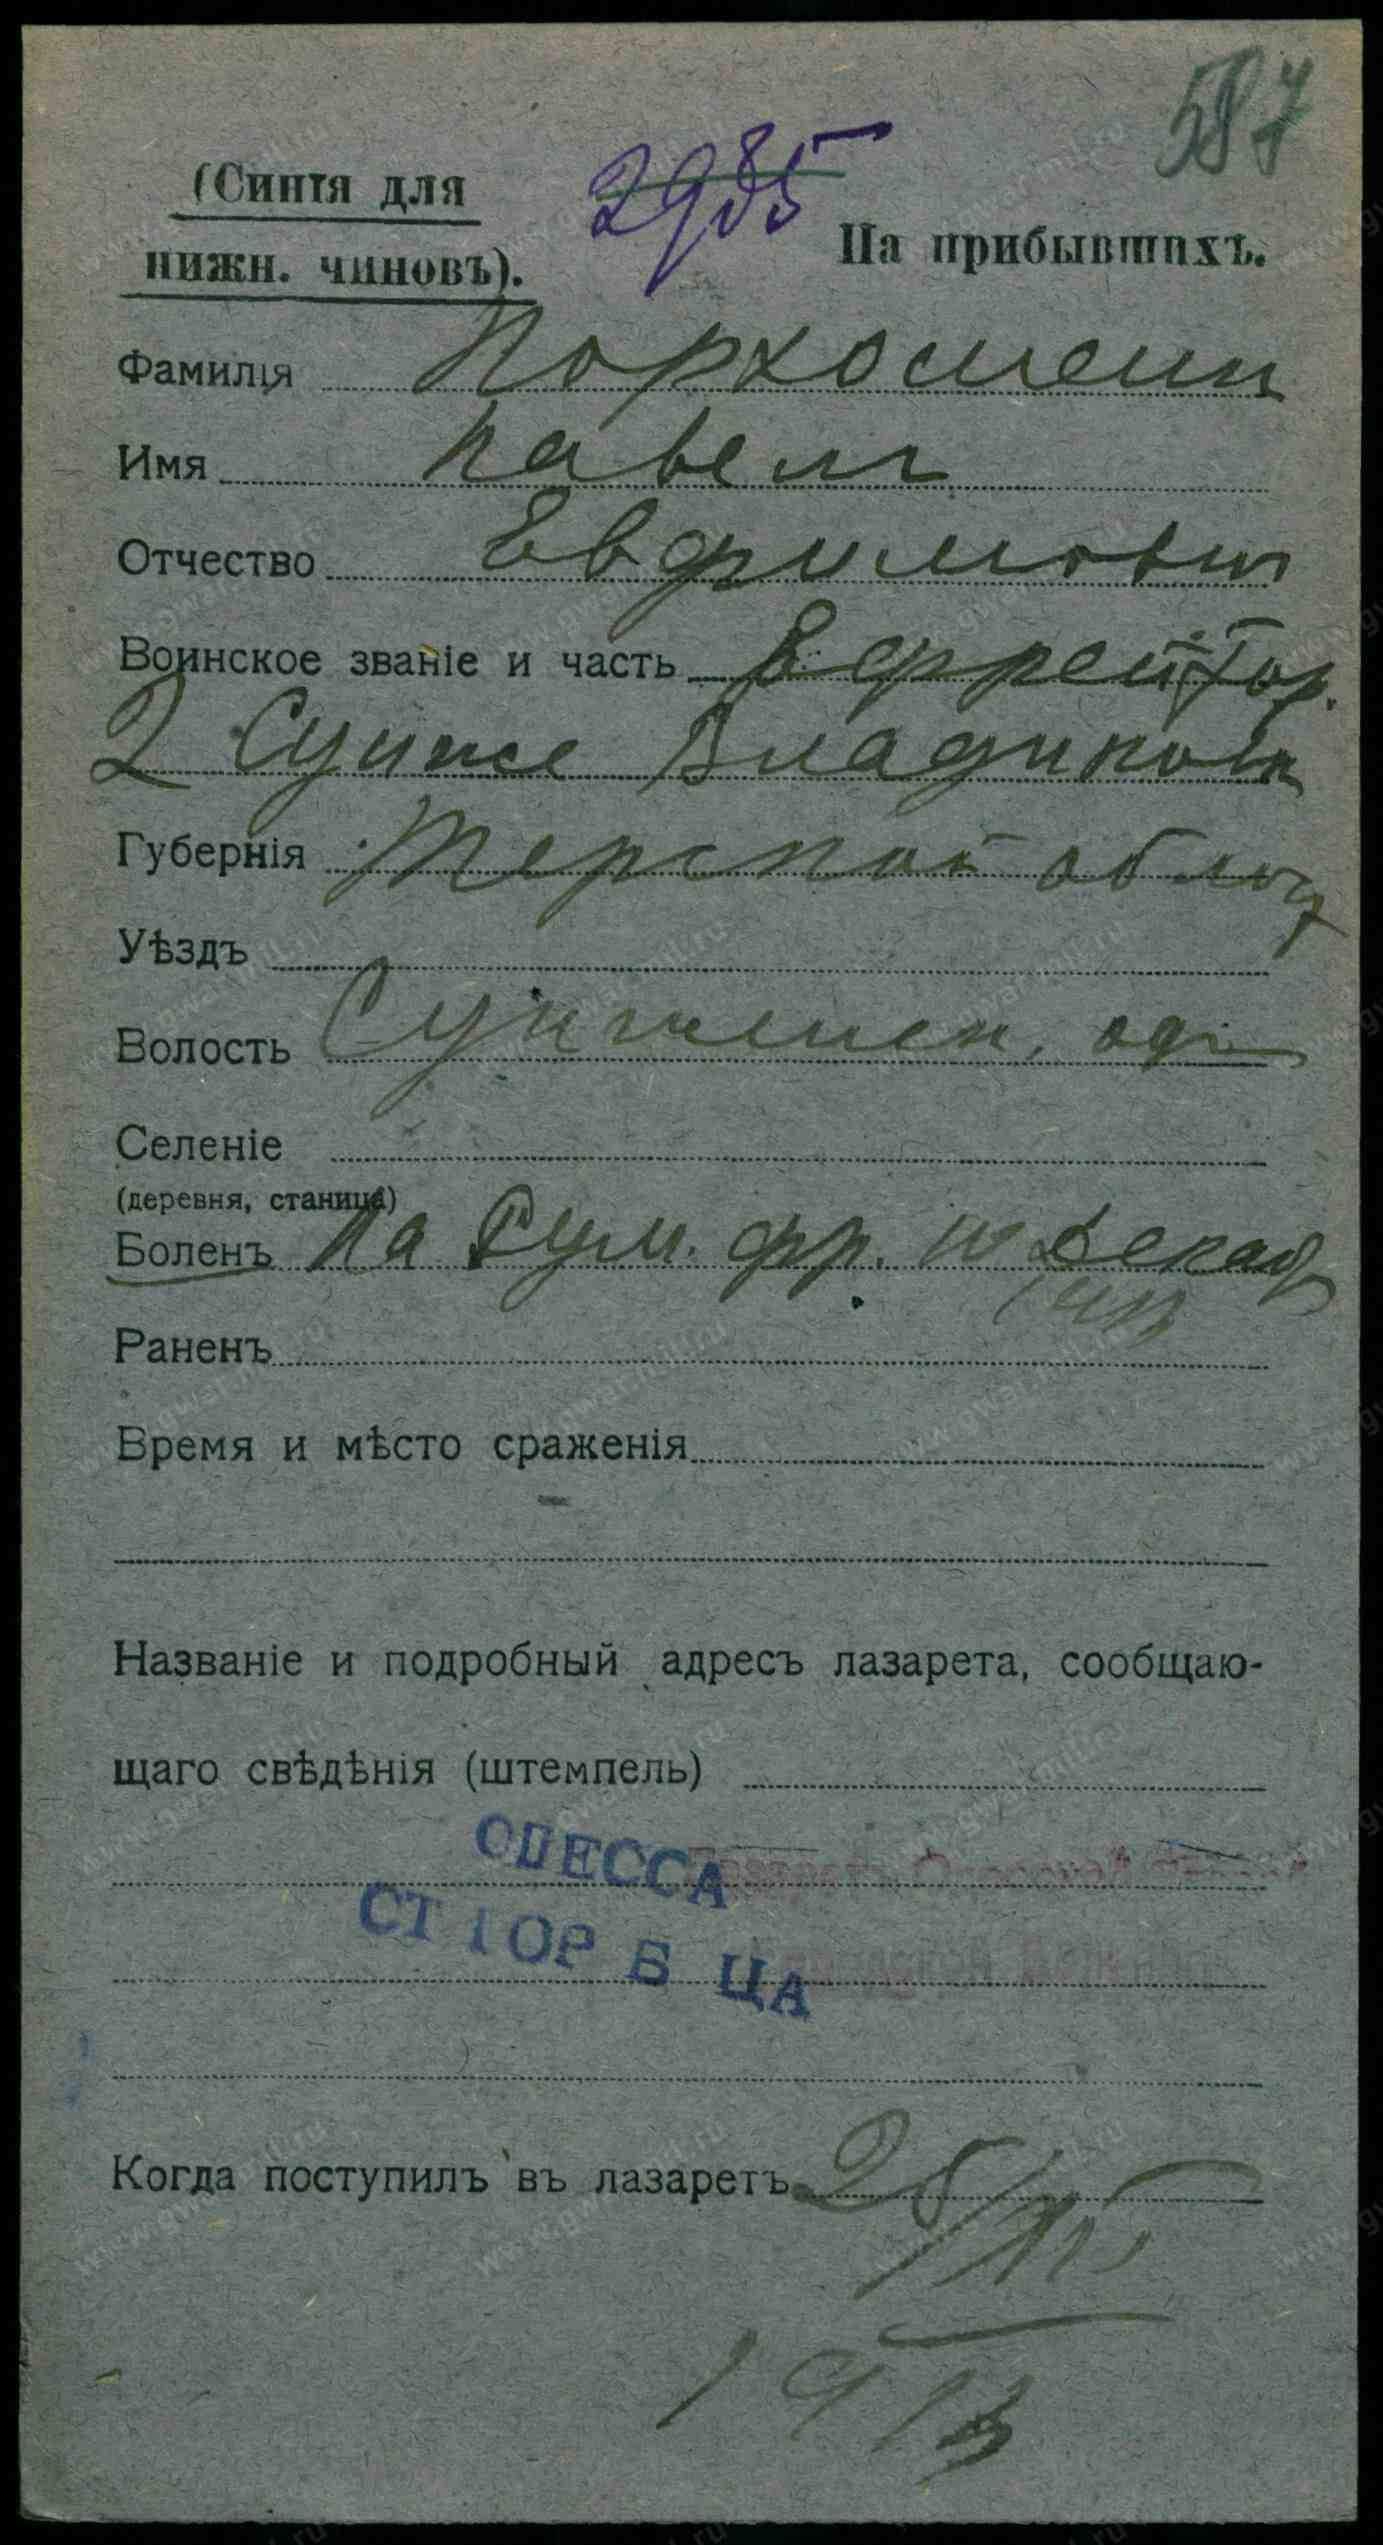 587
2985
(Синія для
нижн. чиновъ).
На прибывшихъ.
Фамилія Пархоменко
Имя Павелъ
Отчество Евфимовичъ
Воинское званіе и часть Ефрейтор.
2 Сунже Владикавк
Губернія Терской област
Уѣздъ
Волость Сунженск. отд.
Селеніе
(деревня, станица)
Боленъ На Рум. фр. 10 Декабр
Раненъ
Время и мѣсто сраженія
Названіе и подробный адресъ лазарета, сообщаю-
щаго свѣдѣнія (штемпель)
ОДЕССА
СТ ГОР Б ЦА
Когда поступилъ въ лазаретъ